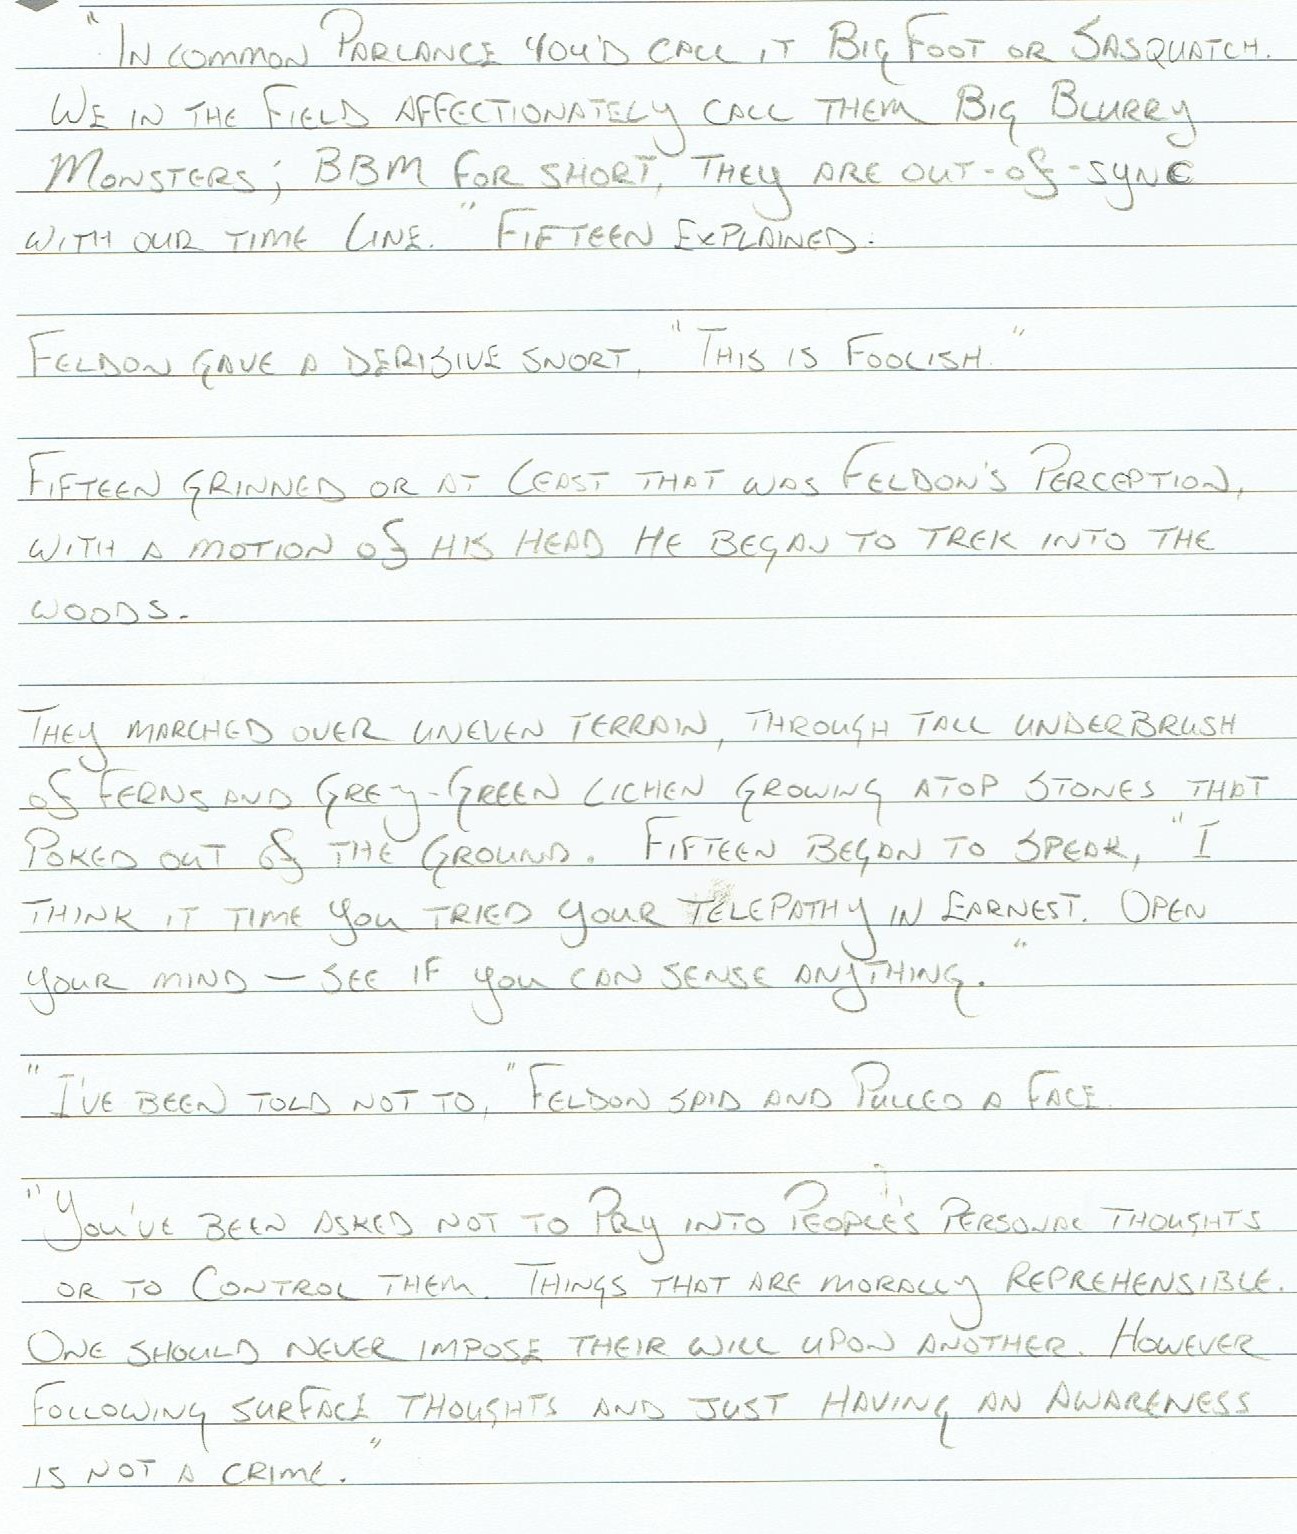 "In common Parlance you'd call it Big Foot or Sasquatch.
We in the Field affectionately call them Big Blurry
Monsters; BBM for short, They are out-of-sync
with our time line." Fifteen Explained.
Feldon gave a derisive snort, "This is Foolish."
Fifteen grinned or at Least that was Feldon's Perception,
with a motion of his head He began to trek into the
woods.
They marched over uneven terrain, through tall underbrush
of Ferns and Grey-Green Lichen growing atop stones that
Poked out of the Ground. Fifteen began to speak, "I
think it time you tried your Telepathy in Earnest. Open
your mind — see if you can sense anything."
"I've been told not to," Feldon said and Pulled a Face.
"You've been asked not to Pry into People's Personal thoughts
or to Control them. Things that are morally reprehensible.
One should never impose their will upon another. However
Following surface thoughts and just having an Awareness
is not a crime."